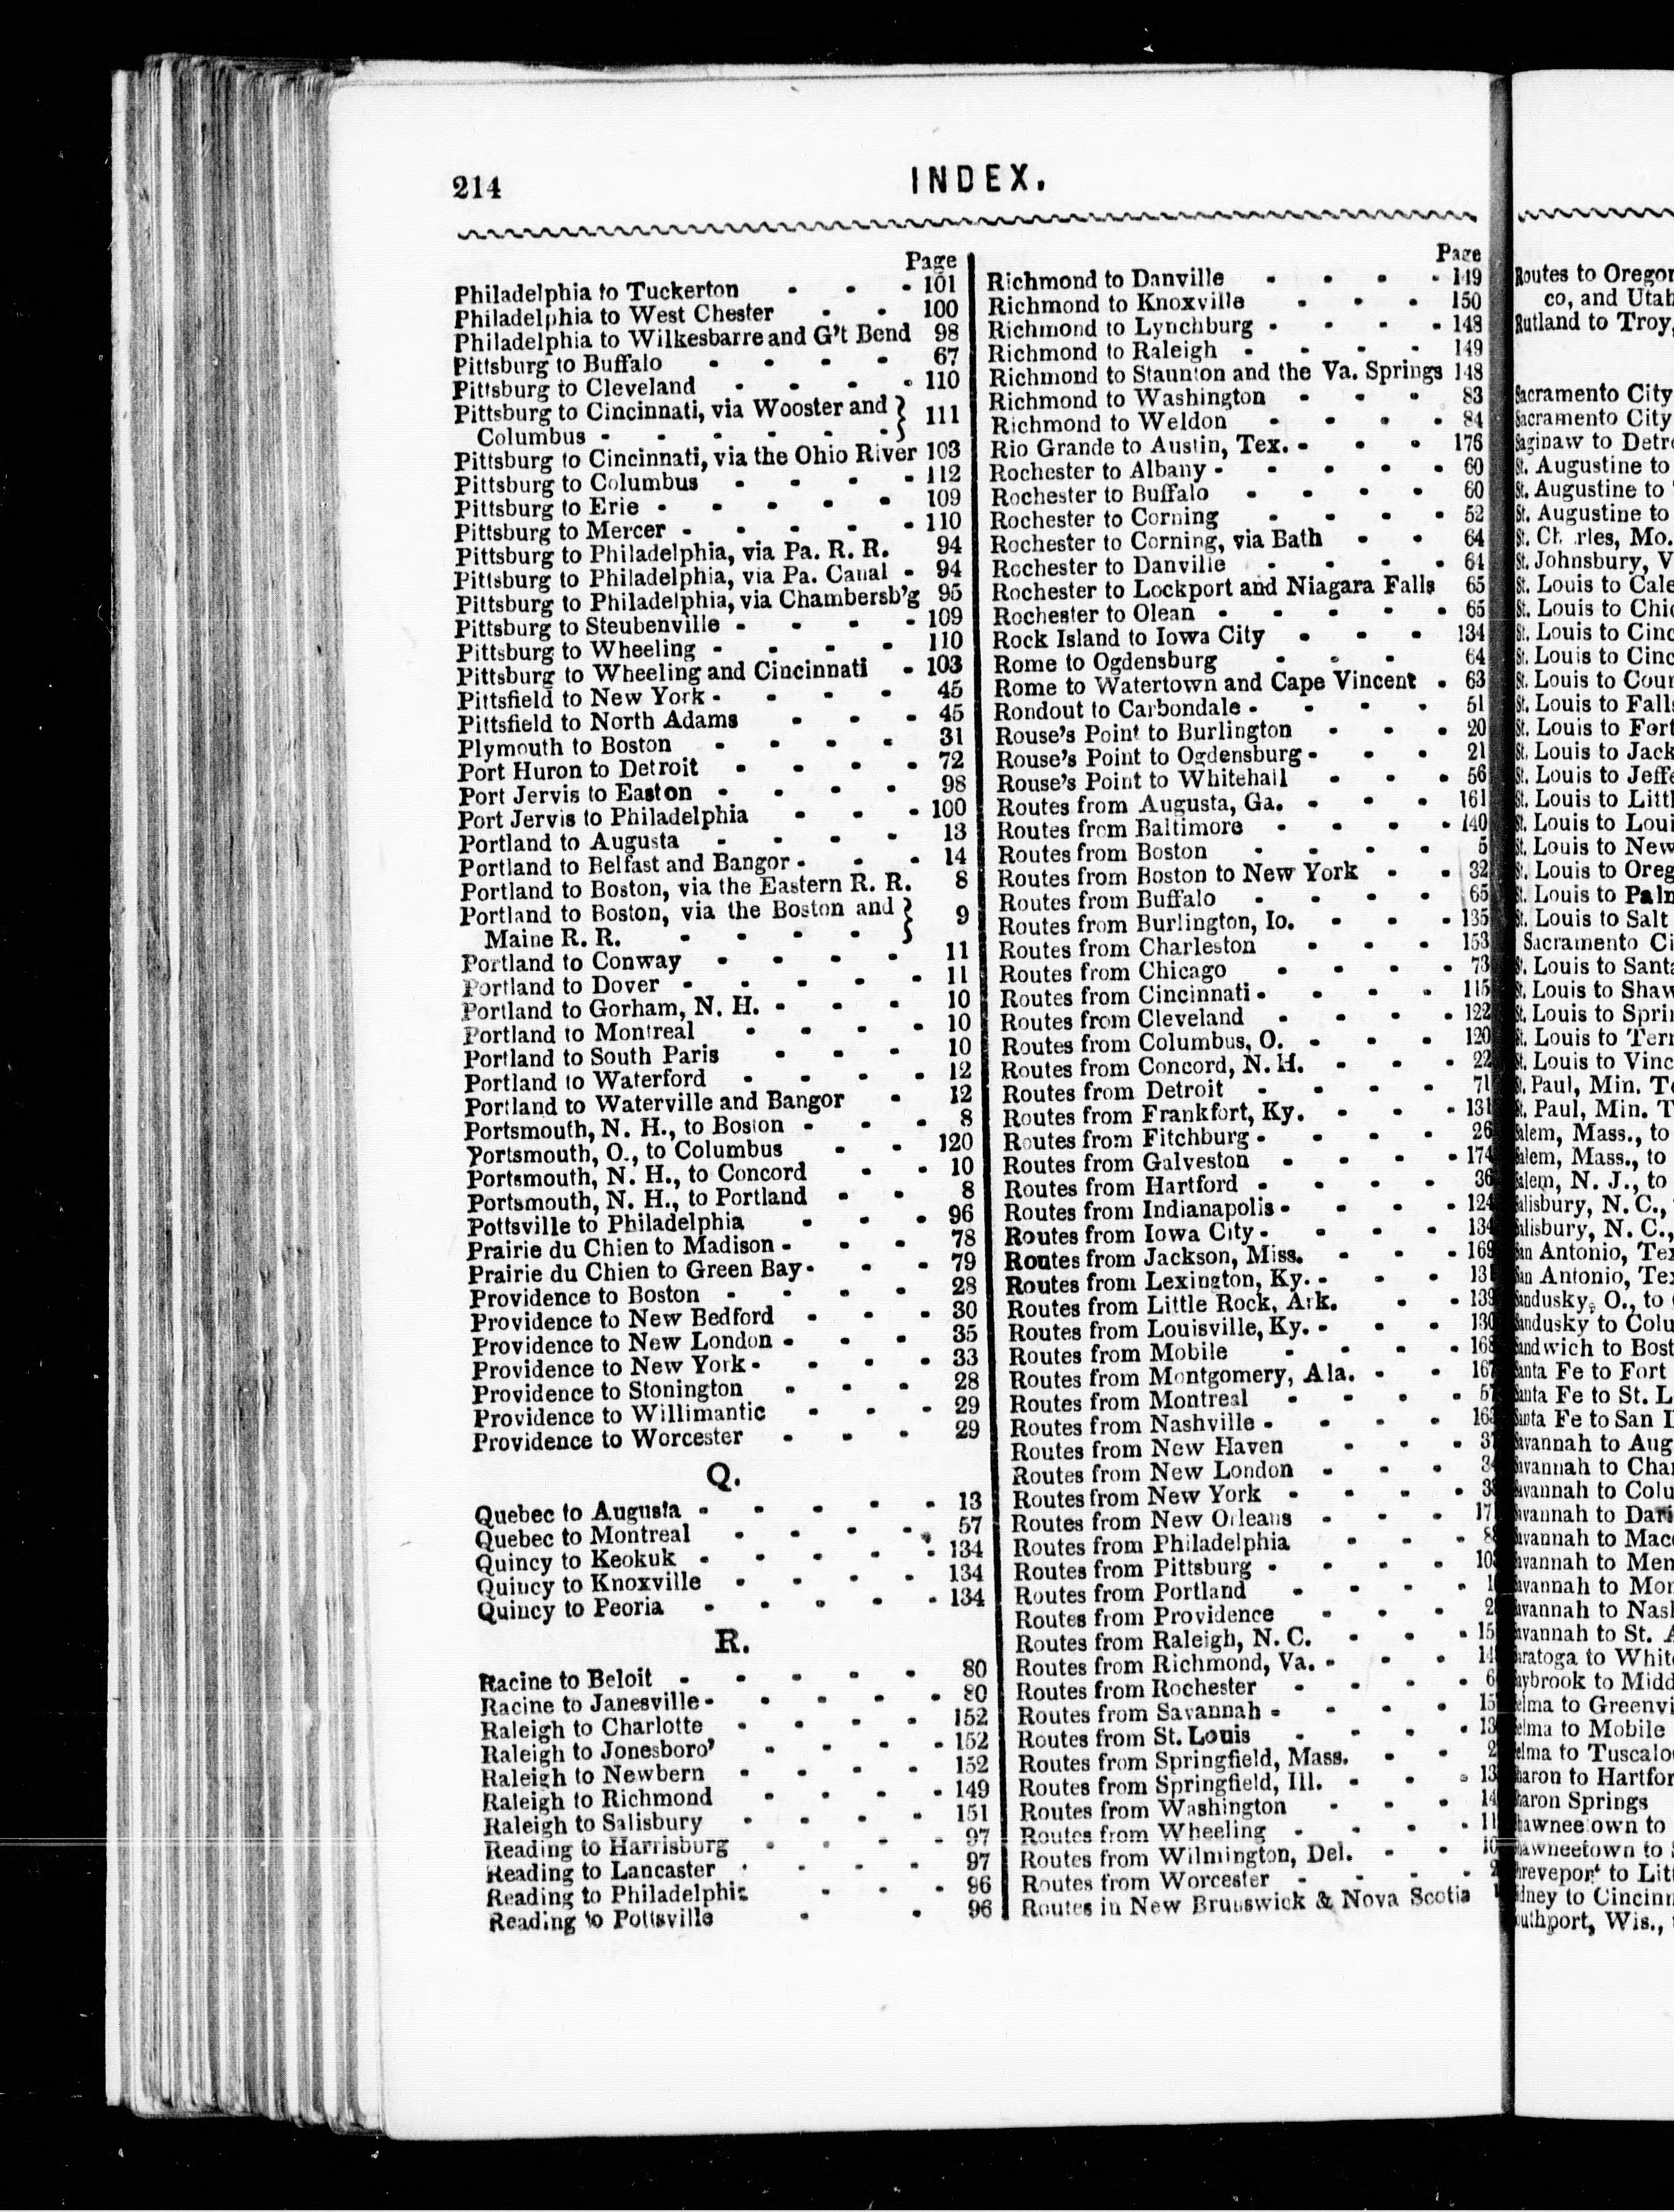 214
INDEX.
Page
Philadelphia to Tuckerton - - - 101
Philadelphia to West Chester - - 100
Philadelphia to Wilkesbarre and G't Bend 98
Pittsburg to Buffalo - - - - 67
Pittsburg to Cleveland - - - - 110
Pittsburg to Cincinnati, via Wooster and } 111
Columbus - - - - - - }
Pittsburg to Cincinnati, via the Ohio River 103
Pittsburg to Columbus - - - - 112
Pittsburg to Erie - - - - - 109
Pittsburg to Mercer - - - - - 110
Pittsburg to Philadelphia, via Pa. R. R. 94
Pittsburg to Philadelphia, via Pa. Canal - 94
Pittsburg to Philadelphia, via Chambersb'g 95
Pittsburg to Steubenville - - - - 109
Pittsburg to Wheeling - - - - 110
Pittsburg to Wheeling and Cincinnati - 103
Pittsfield to New York - - - - 45
Pittsfield to North Adams - - - 45
Plymouth to Boston - - - - 31
Port Huron to Detroit - - - - 72
Port Jervis to Easton - - - - 98
Port Jervis to Philadelphia - - - 100
Portland to Augusta - - - - 13
Portland to Belfast and Bangor - - - 14
Portland to Boston, via the Eastern R. R. 8
Portland to Boston, via the Boston and } 9
Maine R. R. - - - - }
Portland to Conway - - - - 11
Portland to Dover - - - - - 11
Portland to Gorham, N. H. - - - 10
Portland to Montreal - - - - 10
Portland to South Paris - - - 10
Portland to Waterford - - - - 12
Portland to Waterville and Bangor - 12
Portsmouth, N. H., to Boston - - - 8
Portsmouth, O., to Columbus - - 120
Portsmouth, N. H., to Concord - - 10
Portsmouth, N. H., to Portland - - 8
Pottsville to Philadelphia - - - 96
Prairie du Chien to Madison - - - 78
Prairie du Chien to Green Bay - - - 79
Providence to Boston - - - - 28
Providence to New Bedford - - - 30
Providence to New London - - - 35
Providence to New York - - - - 33
Providence to Stonington - - - 28
Providence to Willimantic - - - 29
Providence to Worcester - - - 29
Q.
Quebec to Augusta - - - - - 13
Quebec to Montreal - - - - 57
Quincy to Keokuk - - - - - 134
Quincy to Knoxville - - - - 134
Quincy to Peoria - - - - - 134
R.
Racine to Beloit - - - - - 80
Racine to Janesville - - - - - 80
Raleigh to Charlotte - - - - 152
Raleigh to Jonesboro' - - - - 152
Raleigh to Newbern - - - - 152
Raleigh to Richmond - - - - 149
Raleigh to Salisbury - - - - 151
Reading to Harrisburg - - - - 97
Reading to Lancaster - - - - 97
Reading to Philadelphia - - - 96
Reading to Pottsville - - 96
Page
Richmond to Danville - - - - 149
Richmond to Knoxville - - - 150
Richmond to Lynchburg - - - - 148
Richmond to Raleigh - - - - 149
Richmond to Staunton and the Va. Springs 148
Richmond to Washington - - - 83
Richmond to Weldon - - - - 84
Rio Grande to Austin, Tex. - - - 176
Rochester to Albany - - - - - 60
Rochester to Buffalo - - - - 60
Rochester to Corning - - - - 52
Rochester to Corning, via Bath - - 64
Rochester to Danville - - - - 64
Rochester to Lockport and Niagara Falls 65
Rochester to Olean - - - - - 65
Rock Island to Iowa City - - - 134
Rome to Ogdensburg - - - 64
Rome to Watertown and Cape Vincent - 63
Rondout to Carbondale - - - - 51
Rouse's Point to Burlington - - - 20
Rouse's Point to Ogdensburg - - - 21
Rouse's Point to Whitehall - - - 56
Routes from Augusta, Ga. - - - 161
Routes from Baltimore - - - - 140
Routes from Boston - - - - 5
Routes from Boston to New York - - 32
Routes from Buffalo - - - - 65
Routes from Burlington, Io. - - - 135
Routes from Charleston - - - 153
Routes from Chicago - - - - 73
Routes from Cincinnati - - - - 115
Routes from Cleveland - - - - 122
Routes from Columbus, O. - - - 120
Routes from Concord, N. H. - - - 22
Routes from Detroit - - - - 71
Routes from Frankfort, Ky. - - - 131
Routes from Fitchburg - - - - 26
Routes from Galveston - - - - 174
Routes from Hartford - - - - 36
Routes from Indianapolis - - - - 124
Routes from Iowa City - - - - 134
Routes from Jackson, Miss. - - - 169
Routes from Lexington, Ky. - - - 131
Routes from Little Rock, Ark. - - 139
Routes from Louisville, Ky. - - - 130
Routes from Mobile - - - - 168
Routes from Montgomery, Ala. - - 167
Routes from Montreal - - - - 57
Routes from Nashville - - - -
Routes from New Haven - - -
Routes from New London - - -
Routes from New York - - - -
Routes from New Orleans - - -
Routes from Philadelphia - - -
Routes from Pittsburg - - - -
Routes from Portland - - - -
Routes from Providence - - -
Routes from Raleigh, N. C. - - -
Routes from Richmond, Va. - - -
Routes from Rochester - - - -
Routes from Savannah - - - -
Routes from St. Louis - - - -
Routes from Springfield, Mass. - -
Routes from Springfield, Ill. - - -
Routes from Washington - - -
Routes from Wheeling - - - -
Routes from Wilmington, Del. - -
Routes from Worcester - - - -
Routes in New Brunswick & Nova Scotia
Routes to Oregon
co, and Utah
Rutland to Troy,
Sacramento City
Sacramento City
Saginaw to Detr
St. Augustine to
St. Augustine to
St. Augustine to
St. Charles, Mo.
St. Johnsbury, V
St. Louis to Cale
St. Louis to Chic
St. Louis to Cinc
St. Louis to Cinc
St. Louis to Cour
St. Louis to Fall
St. Louis to Fort
St. Louis to Jack
St. Louis to Jeffe
St. Louis to Littl
St. Louis to Loui
St. Louis to New
St. Louis to Oreg
St. Louis to Palm
St. Louis to Salt
Sacramento Ci
St. Louis to Santa
St. Louis to Shaw
St. Louis to Sprin
St. Louis to Terr
St. Louis to Vinc
St. Paul, Min. Te
St. Paul, Min. T
Salem, Mass., to
Salem, Mass., to
Salem, N. J., to
Salisbury, N. C.,
Salisbury, N. C.,
San Antonio, Tex
San Antonio, Tex
Sandusky, O., to
Sandusky to Colu
Sandwich to Bost
Santa Fe to Fort
Santa Fe to St. L
Santa Fe to San
Savannah to Aug
Savannah to Char
Savannah to Colu
Savannah to Dari
Savannah to Maco
Savannah to Men
Savannah to Mor
Savannah to Nash
Savannah to St. A
Saratoga to White
Saybrook to Midd
Selma to Greenvi
Selma to Mobile
Selma to Tuscaloo
Sharon to Hartfor
Sharon Springs
Shawneetown to
Shawneetown to
Shreveport to Litt
Sidney to Cincinn
Southport, Wis.,